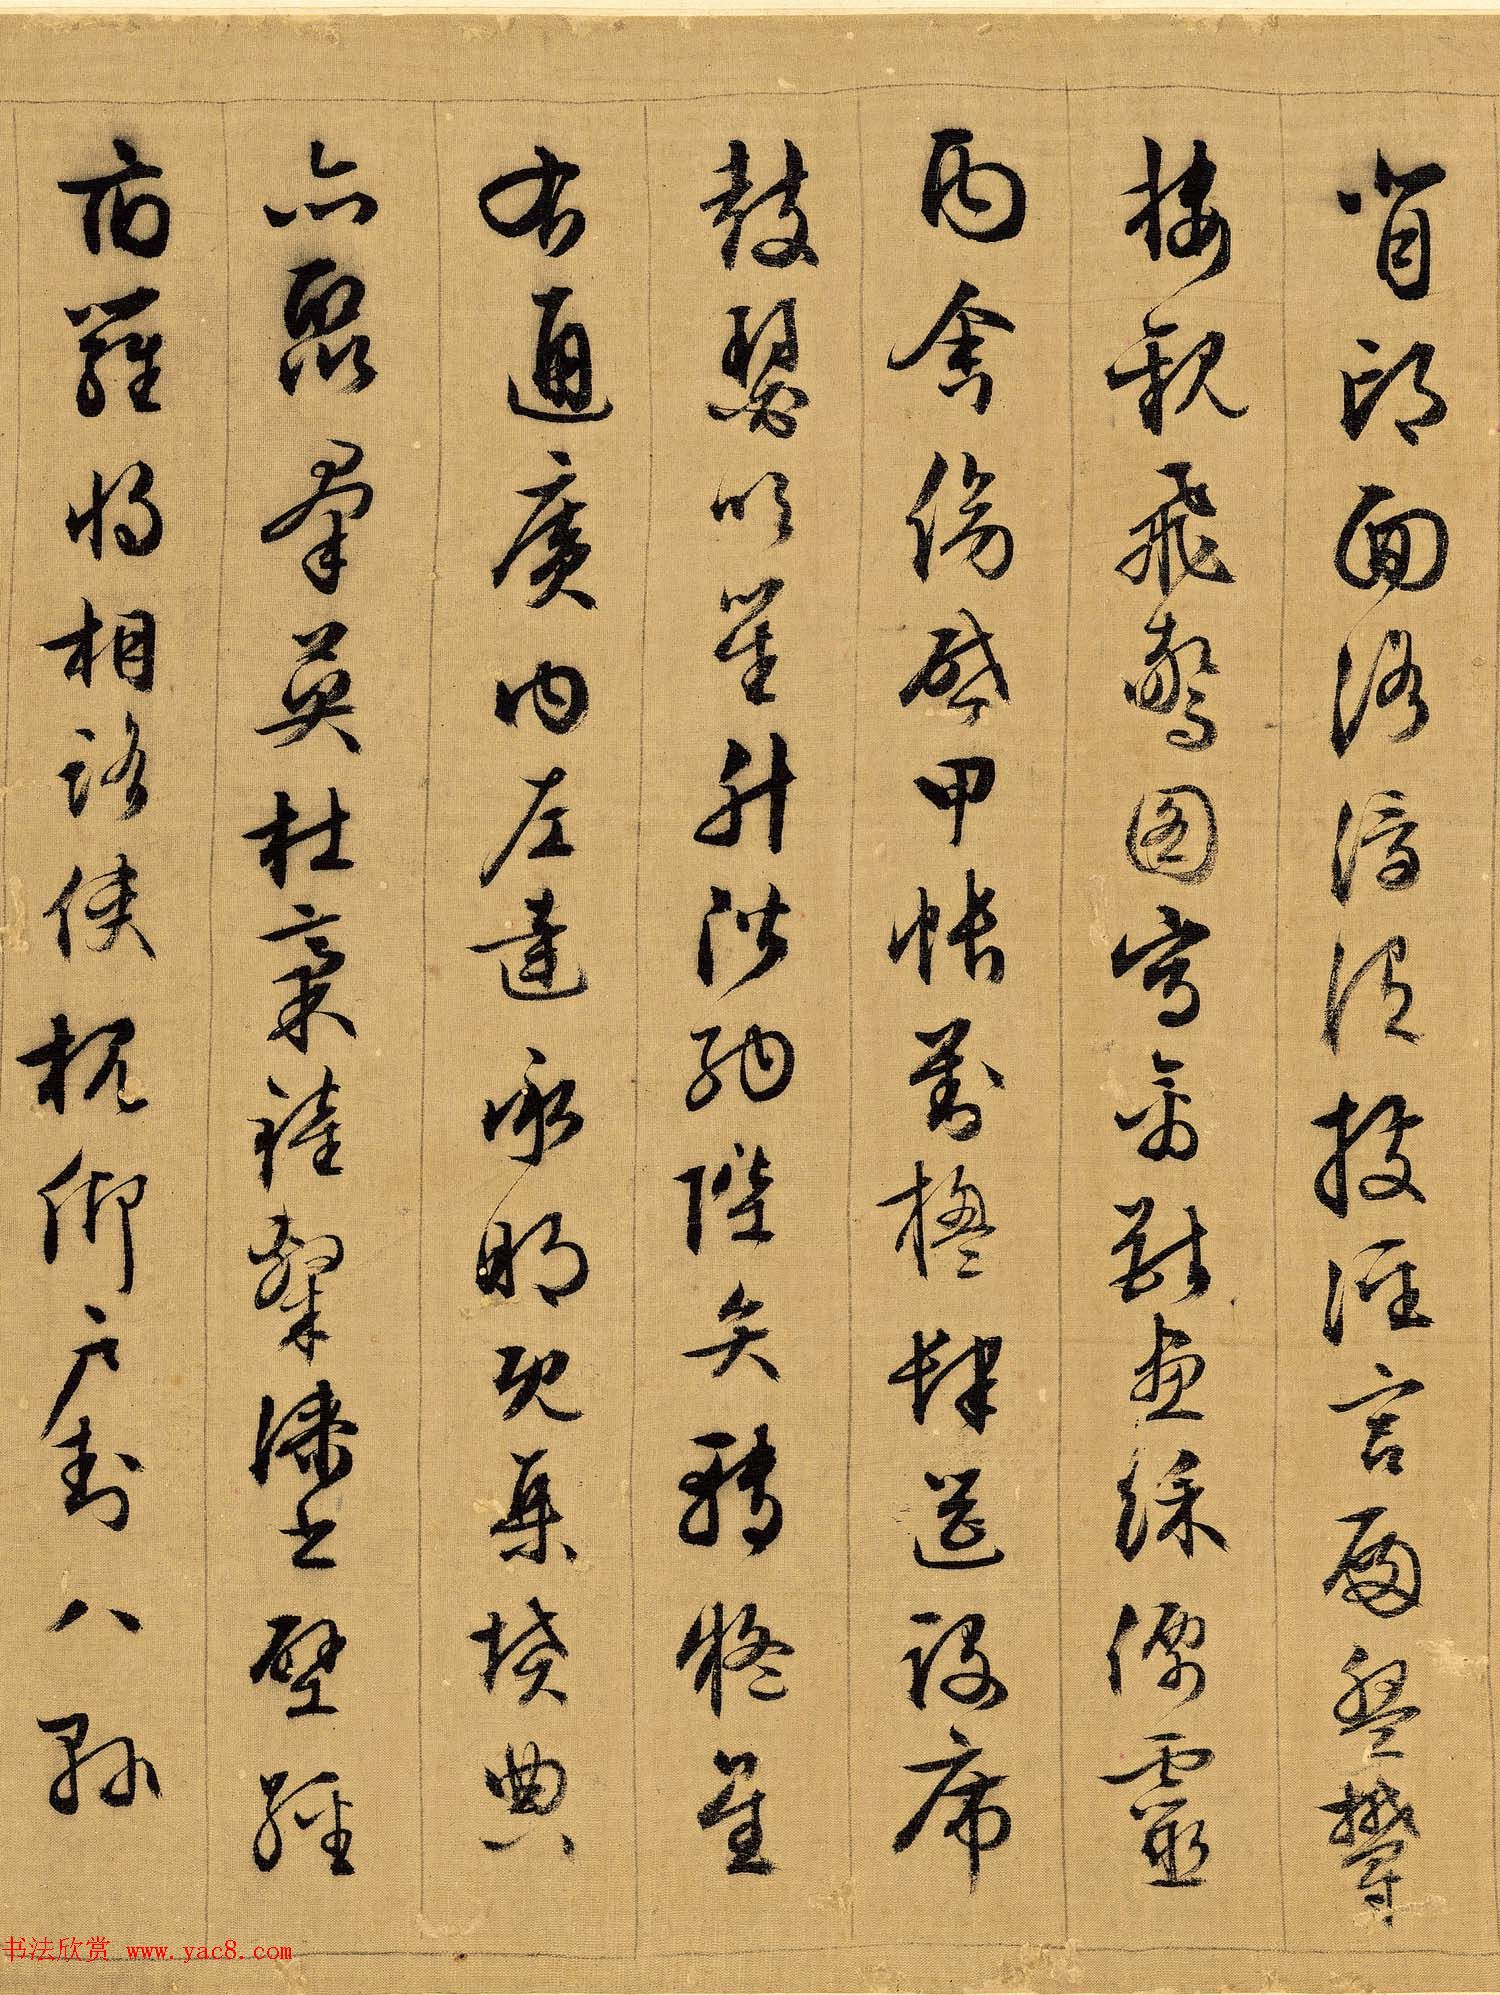 背邙面洛浮渭據涇宮殿盤鬱
樓觀飛驚圖寫禽獸畫綵仙靈
丙舍傍啓甲帳對楹肆筵設席
鼓瑟吹笙升階納陛弁轉疑星
右通廣內左達承明既集墳典
亦聚群英杜稾鍾隸漆書壁經
府羅將相路俠槐卿戶封八縣
书法欣赏 www.yac8.com